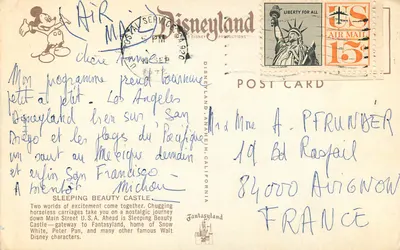 AIR MAIL
Disneyland
LIBERTY FOR ALL
US
AIR MAIL
15¢
POST CARD
Mon programme prend tournure
petit à petit. Los Angeles
Disneyland hier sur! San
Diego et les plages du Pacifique
un saut au Mexique demain
et enfin San Francisco.
A bientôt Michou
SLEEPING BEAUTY CASTLE
Two worlds of excitement come together. Chugging
horseless carriages take you on a nostalgic journey
down Main Street U.S.A. Ahead is Sleeping Beauty
Castle—gateway to Fantasyland, home of Snow
White, Peter Pan, and many other famous Walt
Disney characters.
DISNEYLAND, ANAHEIM, CALIFORNIA
Fantasyland
Mr & Mme A. PFRUNDER
19 Bd Raspail
84000 AVIGNON
FRANCE